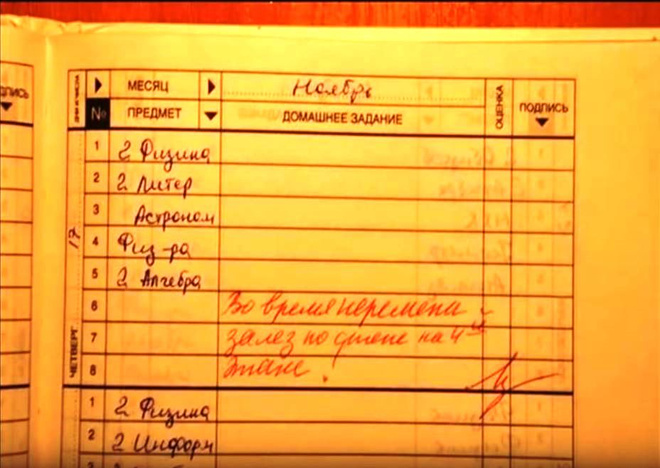 дпись
ДНИ И ЧИСЛА
МЕСЯЦ Ноябрь
№ ПРЕДМЕТ ДОМАШНЕЕ ЗАДАНИЕ ОЦЕНКА ПОДПИСЬ
ЧЕТВЕРГ 17
1 2 Физика
2 2 Литер
3 Астроном
4 Физ-ра
5 2 Алгебра
6 Во время перемены
7 залез по стене на 4ый
8 этаж.
1 2 Физика
2 2 Информ